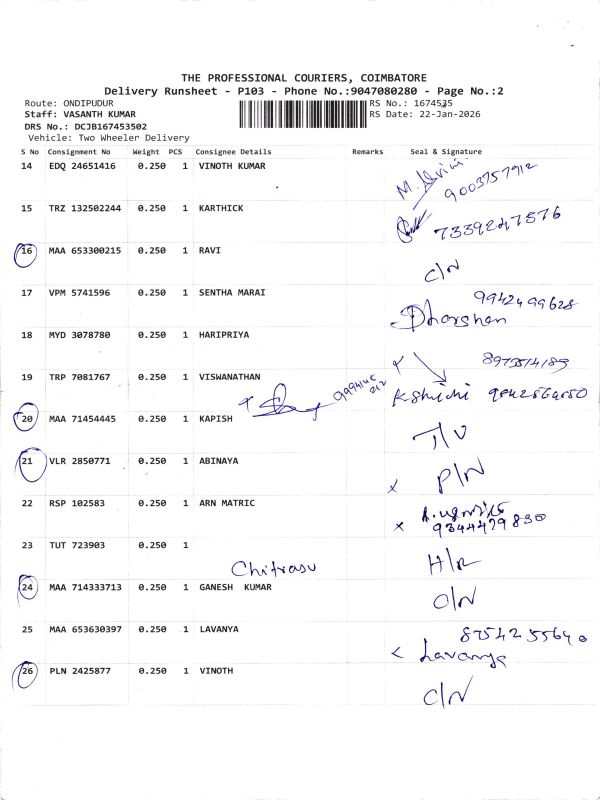 THE PROFESSIONAL COURIERS, COIMBATORE
Delivery Runsheet - P103 - Phone No.:9047080280 - Page No.:2
Route: ONDIPUDUR RS No.: 1674535
Staff: VASANTH KUMAR RS Date: 22-Jan-2026
DRS No.: DCJB167453502
Vehicle: Two Wheeler Delivery
S No Consignment No Weight PCS Consignee Details Remarks Seal & Signature
14 EDQ 24651416 0.250 1 VINOTH KUMAR
9003757912
15 TRZ 132502244 0.250 1 KARTHICK
7339247576
16 MAA 653300215 0.250 1 RAVI
C/N
17 VPM 5741596 0.250 1 SENTHA MARAI 9942499628
Dharshan
18 MYD 3078780 0.250 1 HARIPRIYA
8973514189
19 TRP 7081767 0.250 1 VISWANATHAN
20 MAA 71454445 0.250 1 KAPISH
21 VLR 2850771 0.250 1 ABINAYA
P/N
22 RSP 102583 0.250 1 ARN MATRIC
9344479830
23 TUT 723903 0.250 1
Chitrasu
24 MAA 714333713 0.250 1 GANESH KUMAR
C/N
25 MAA 653630397 0.250 1 LAVANYA 8754255640
Lavanya
26 PLN 2425877 0.250 1 VINOTH
C/N